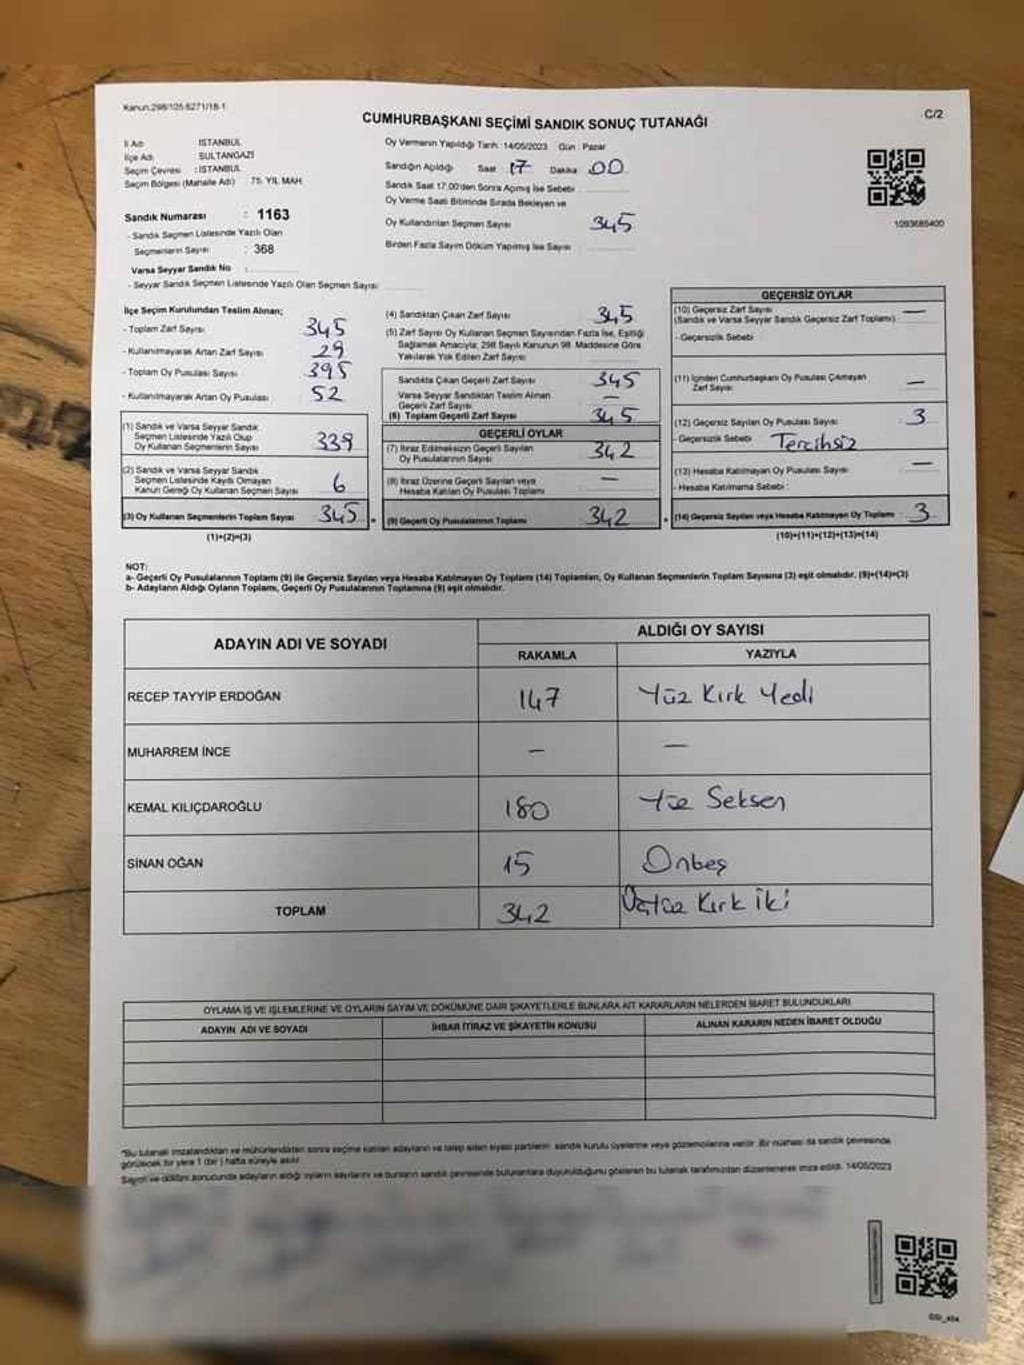 Kanun:298/105-6271/18-1
C/2
CUMHURBAŞKANI SEÇİMİ SANDIK SONUÇ TUTANAĞI
İl Adı İSTANBUL
İlçe Adı SULTANGAZİ
Seçim Çevresi : İSTANBUL
Seçim Bölgesi (Mahalle Adı) 75. YIL MAH.
Sandık Numarası : 1163
- Sandık Seçmen Listesinde Yazılı Olan
Seçmenlerin Sayısı : 368
Varsa Seyyar Sandık No :
- Seyyar Sandık Seçmen Listesinde Yazılı Olan Seçmen Sayısı
Oy Vermenin Yapıldığı Tarih : 14/05/2023 Gün : Pazar
Sandığın Açıldığı Saat 17 Dakika 00
Sandık Saat 17.00'den Sonra Açılmış İse Sebebi
Oy Verme Saati Bitiminde Sırada Bekleyen ve
Oy Kullandırılan Seçmen Sayısı 345
Birden Fazla Sayım Döküm Yapılmış İse Sayısı
1093685400
İlçe Seçim Kurulundan Teslim Alınan;
- Toplam Zarf Sayısı 345
- Kullanılmayarak Artan Zarf Sayısı 29
- Toplam Oy Pusulası Sayısı 395
- Kullanılmayarak Artan Oy Pusulası 52
(1) Sandık ve Varsa Seyyar Sandık
Seçmen Listesinde Yazılı Olup
Oy Kullanan Seçmenlerin Sayısı 339
(2) Sandık ve Varsa Seyyar Sandık
Seçmen Listesinde Kaydı Olmayan
Kanun Gereği Oy Kullanan Seçmen Sayısı 6
(3) Oy Kullanan Seçmenlerin Toplam Sayısı 345
(1)+(2)=(3)
(4) Sandıktan Çıkan Zarf Sayısı 345
(5) Zarf Sayısı Oy Kullanan Seçmen Sayısından Fazla İse, Eşitliği
Sağlamak Amacıyla; 298 Sayılı Kanunun 98. Maddesine Göre
Yakılarak Yok Edilen Zarf Sayısı
Sandıkta Çıkan Geçerli Zarf Sayısı 345
Varsa Seyyar Sandıktan Teslim Alınan
Geçerli Zarf Sayısı —
(6) Toplam Geçerli Zarf Sayısı 345
GEÇERLİ OYLAR
(7) İtiraz Edilmeksizin Geçerli Sayılan
Oy Pusulalarının Sayısı 342
(8) İtiraz Üzerine Geçerli Sayılan veya
Hesaba Katılan Oy Pusulası Toplamı —
(9) Geçerli Oy Pusulalarının Toplamı 342
GEÇERSİZ OYLAR
(10) Geçersiz Zarf Sayısı —
(Sandık ve Varsa Seyyar Sandık Geçersiz Zarf Toplamı)
- Geçersizlik Sebebi
(11) İçinden Cumhurbaşkanı Oy Pusulası Çıkmayan
Zarf Sayısı —
(12) Geçersiz Sayılan Oy Pusulası Sayısı 3
- Geçersizlik Sebebi Tercihsiz
(13) Hesaba Katılmayan Oy Pusulası Sayısı —
- Hesaba Katılmama Sebebi :
(14) Geçersiz Sayılan veya Hesaba Katılmayan Oy Toplamı 3
(10)+(11)+(12)+(13)=(14)
NOT:
a- Geçerli Oy Pusulalarının Toplamı (9) ile Geçersiz Sayılan veya Hesaba Katılmayan Oy Toplamı (14) Toplamları, Oy Kullanan Seçmenlerin Toplam Sayısına (3) eşit olmalıdır. (9)+(14)=(3)
b- Adayların Aldığı Oyların Toplamı, Geçerli Oy Pusulalarının Toplamına (9) eşit olmalıdır.
ADAYIN ADI VE SOYADI
ALDIĞI OY SAYISI
RAKAMLA YAZIYLA
RECEP TAYYİP ERDOĞAN 147 Yüz Kırk Yedi
MUHARREM İNCE — —
KEMAL KILIÇDAROĞLU 180 Yüz Seksen
SİNAN OĞAN 15 Onbeş
TOPLAM 342 Üçyüz Kırk İki
OYLAMA İŞ VE İŞLEMLERİNE VE OYLARIN SAYIM VE DÖKÜMÜNE DAİR ŞİKAYETLERLE BUNLARA AİT KARARLARIN NELERDEN İBARET BULUNDUKLARI
ADAYIN ADI VE SOYADI İHBAR İTİRAZ VE ŞİKAYETİN KONUSU ALINAN KARARIN NEDEN İBARET OLDUĞU
*Bu tutanak imzalandıktan ve mühürlendikten sonra seçime katılan adayların ve talep eden siyasi partilerin sandık kurulu üyelerine veya gözlemcilerine verilir. Bir nüshası da sandık çevresinde
görülecek bir yere 1 (bir) hafta süreyle asılır.
Sayım ve döküm sonucunda adayların aldığı oyların sayılarını ve bunların sandık çevresinde bulunanlara duyurulduğunu gösteren bu tutanak tarafımızdan düzenlenerek imza edildi. 14/05/2023